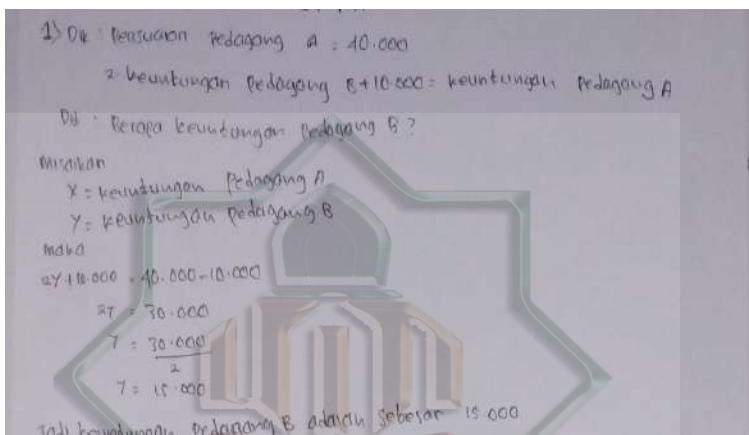 1) Dik : Pensucian Pedagang A = 40.000
2 keuntungan Pedagang B+10.000 = keuntungan Pedagang A
Dit : Berapa keuntungan Pedagang B ?
Misalkan
X = keuntungan Pedagang A
Y = keuntungan Pedagang B
maka
2Y+10.000 = 40.000-10.000
2Y = 30.000
Y = 30.000
2
Y = 15.000
Jadi keuntungan Pedagang B adalah sebesar 15.000